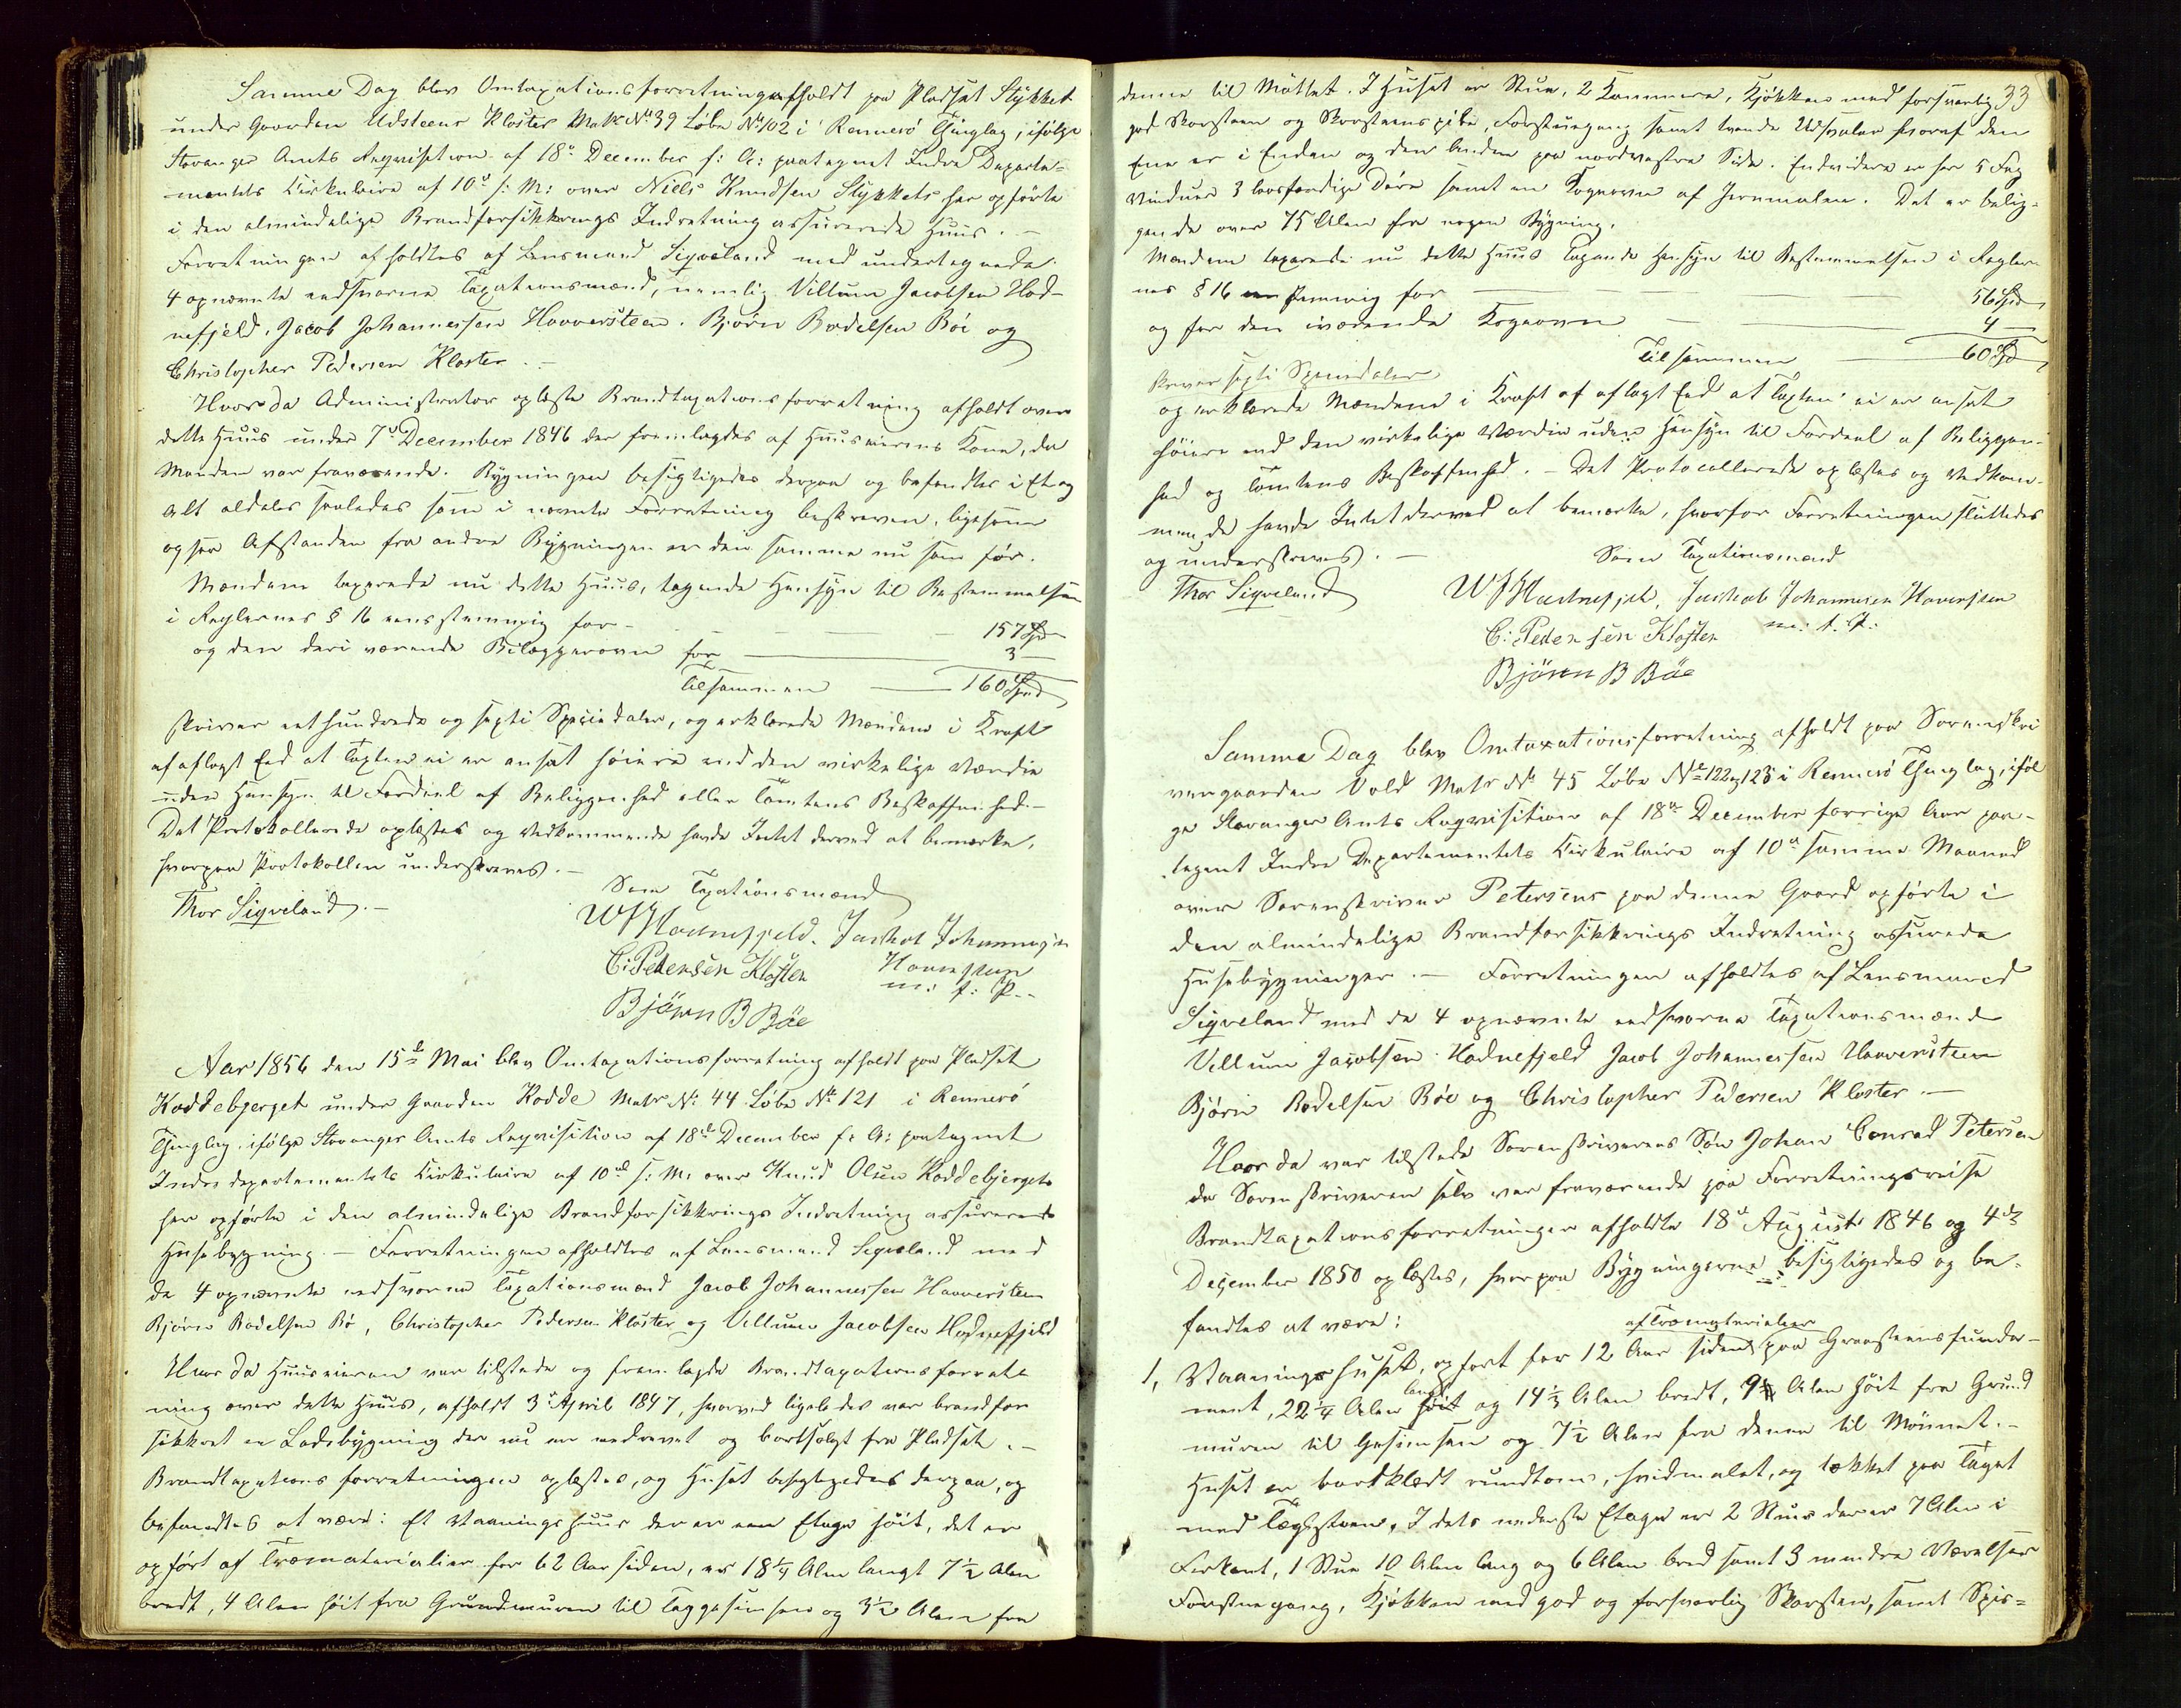 Samme Dag blev Omtaxationsforretning afholdt paa Pladset Stykket
under Gaarden Udsteens Kloster Matr. No. 39 Løbe No. 102 i Rennesö Thinglag, ifølge
Stavanger Amts Reqvisition af 18de December f: A: paategnet Indre Departe-
mentets Cirkulaire af 10de s: M: over Niels Knudsen Stykkets her opførte
i den almindelige Brandforsikkrings Indretning assurerede Huus. –
Forretningen afholdtes af Lensmand Sigveland med undertegnede
4 opnævnte eedsvorne Taxationsmænd, nemlig Villum Jacobsen Hod-
nefjeld, Jacob Johannessen Haoversteen. Bjørn Bodelsen Böe og
Christopher Pedersen Kloster. –
Hvor da Administrator oplæste Brandtaxationsforretning afholdt over
dette Huus under 7de December 1846 der fremlagdes af Huuseierens Kone, da
Manden var fraværende. Bygningen besigtigedes derpaa og befandtes i Et og
Alt aldeles saaledes som i nævnte Forretning beskreven, ligesom
ogsaa Afstanden fra andre Bygninger er den samme nu som før.
Mændene taxerede nu dette Huus, tagende Hensyn til Bestemmelsen
i Reglernes § 16 eensstemmig for – 157 Spd
og den deri værende Bilæggerovn for 3 –
Tilsammen 160 Spd
skriver eethundrede og sexti Speciedaler, og erklærede Mændene i Kraft
af aflagt Eed at Taxten ei er ansat høiere end den virkelige Værdie
uden Hensyn til Fordeel af Beliggenhed eller Tomtens Beskaffenhed. –
Det Protokollerede oplæstes og Vedkommende havde Intet derved at bemærke,
hvorpaa Protokollen underskreves. –
Som Taxationsmænd
Thor Sigveland. –
W J Hadnefjeld. Jackob Johannesen
C: Pedersen Kloster Haversteen
m: f: P..
Björn B Böe
Aar 1856 den 15de Mai blev Omtaxationsforretning afholdt paa Pladset
Koddebjerget under Gaarden Kodde Matr No. 44 Løbe No. 121 i Rennesö
Thinglag, ifølge Stavanger Amts Reqvisition af 18de December f: A: paategnet
Indredepartementets Cirkulaire af 10de s: M: over Knud Olsen Koddebjergets
her opførte i den almindelige Brandforsikkrings Indretning assurerede
Husebygning. – Forretningen afholdtes af Lensmand Sigveland med
de 4 opnævnte eedsvorne Taxationsmænd Jacob Johannessen Haoversteen
Bjørn Bodelsen Bö, Christopher Pedersen Kloster og Villum Jacobsen Hodnefjeld
Hvor da Huuseieren var tilstede og fremlagde Brandtaxationsforret-
ning over dette Huus, afholdt 3de April 1847, hvorved ligeledes var brandfor
sikkret en Ladebygning der nu er nedrevet og bortsolgt fra Pladset. –
Brandtaxationsforretningen oplæstes, og Huset besigtigedes derpaa, og
befandtes at være: Et Vaaningshuus der er een Etage høit, det er
opført af Træmaterialier for 62 Aar siden, er 18 1/4 Alen langt 7 1/2 Alen
bredt, 4 Alen høit fra Grundmuren til Taggesimsen og 3 1/2 Alen fra
33
denne til Mønnet. I Huset er Stue, 2 Kammere, Kjøkken med forsvarlig
god Skorsteen og Skorsteenspibe, Forstuegang samt tvende Udsvaler hvoraf den
Ene er i Enden og den Anden paa nordvestre Side. Endvidere er her 5 Fag
Vinduer 3 laasfærdige Døre samt en Kogeovn af Jernmalm. Det er belig-
gende over 75 Alen fra nogen Bygning.
Mændene taxerede nu dette Huus tagende Hensyn til Bestemmelsen i Regler-
nes § 16 eenstemmig for 56 Spd
og for den iværende Kogeovn 4 –
Tilsammen 60 Spd
skriver sexti Speciedaler
og erklærede Mændene i Kraft af aflagt Eed at Taxten ei er ansat
høiere end den virkelige Værdie uden Hensyn til Fordeel af Beliggen-
hed og Tomtens Beskaffenhed. – Det Protocollerede oplæstes og Vedkom-
mende havde Intet derved at bemærke, hvorfor Forretningen sluttedes
og underskreves. –
Som Taxationsmænd
Thor Sigveland
W J Hadnefjeld, Jackob Johannesen Haversteen
C: Pedersen Kloster m: f: P:
Björn B Böe
Samme Dag blev Omtaxationsforretning afholdt paa Sorenskri
vergaarden Vold Matr No. 45 Løbe No. 122 og 123 i Rennesö Thinglag, iføl
ge Stavanger Amts Reqvisition af 18de December forrige Aar paa-
tegnet Indre Departementets Cirkulaire af 10de samme Maaned
over Sorenskriver Petersens paa denne Gaard opførte i
den almindelige Brandforsikkrings Indretning assurede
Husebygninger. – Forretningen afholdtes af Lensmand
Sigveland med de 4 opnævnte eedsvorne Taxationsmænd
Villum Jacobsen Hodnefjeld Jacob Johannessen Haoversteen
Bjørn Bodelsen Böe og Christopher Pedersen Kloster. –
Hvor da var tilstede Sorenskriverens Søn Johan Conrad Petersen
da Sorenskriveren selv var fraværende paa Forretningsreise
Brandtaxationsforretninger afholdte 18de August 1846 og 4de
December 1850 oplæstes, hvorpaa Bygningerne besigtigedes og be-
fandtes at være:
af Træmaterialier
1, Vaaningshuset, opført for 12 Aar siden paa Graasteensfunda-
langt
ment, 22 1/4 Alen høit og 14 1/3 Alen bredt, 9 Alen høit fra Grund
muren til Gesimsen og 7 1/2 Alen fra denne til Mønnet. –
Huset er bordklædt rundtom, hvidmalet, og tækket paa Taget
med Tæglsteen. I dets nederste Etage er 2 Stuer der er 7 Alen i
Firkant, 1 Stue 10 Alen lang og 6 Alen bred samt 3 mindre Værelser
Forstuegang, Kjøkken med god og forsvarlig Skorsten, samt Spis-